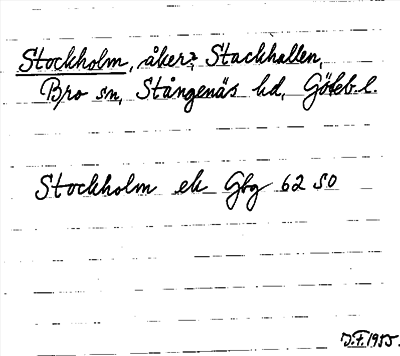 Stockholm, åker, Stackhallen,
Bro sn, Stångenäs hd, Göteb. l.
Stockholm ek Gbg 62 SO
J.F. 1955.